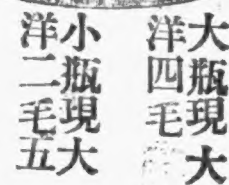 大瓶現大
洋四毛
小瓶現大
洋二毛五